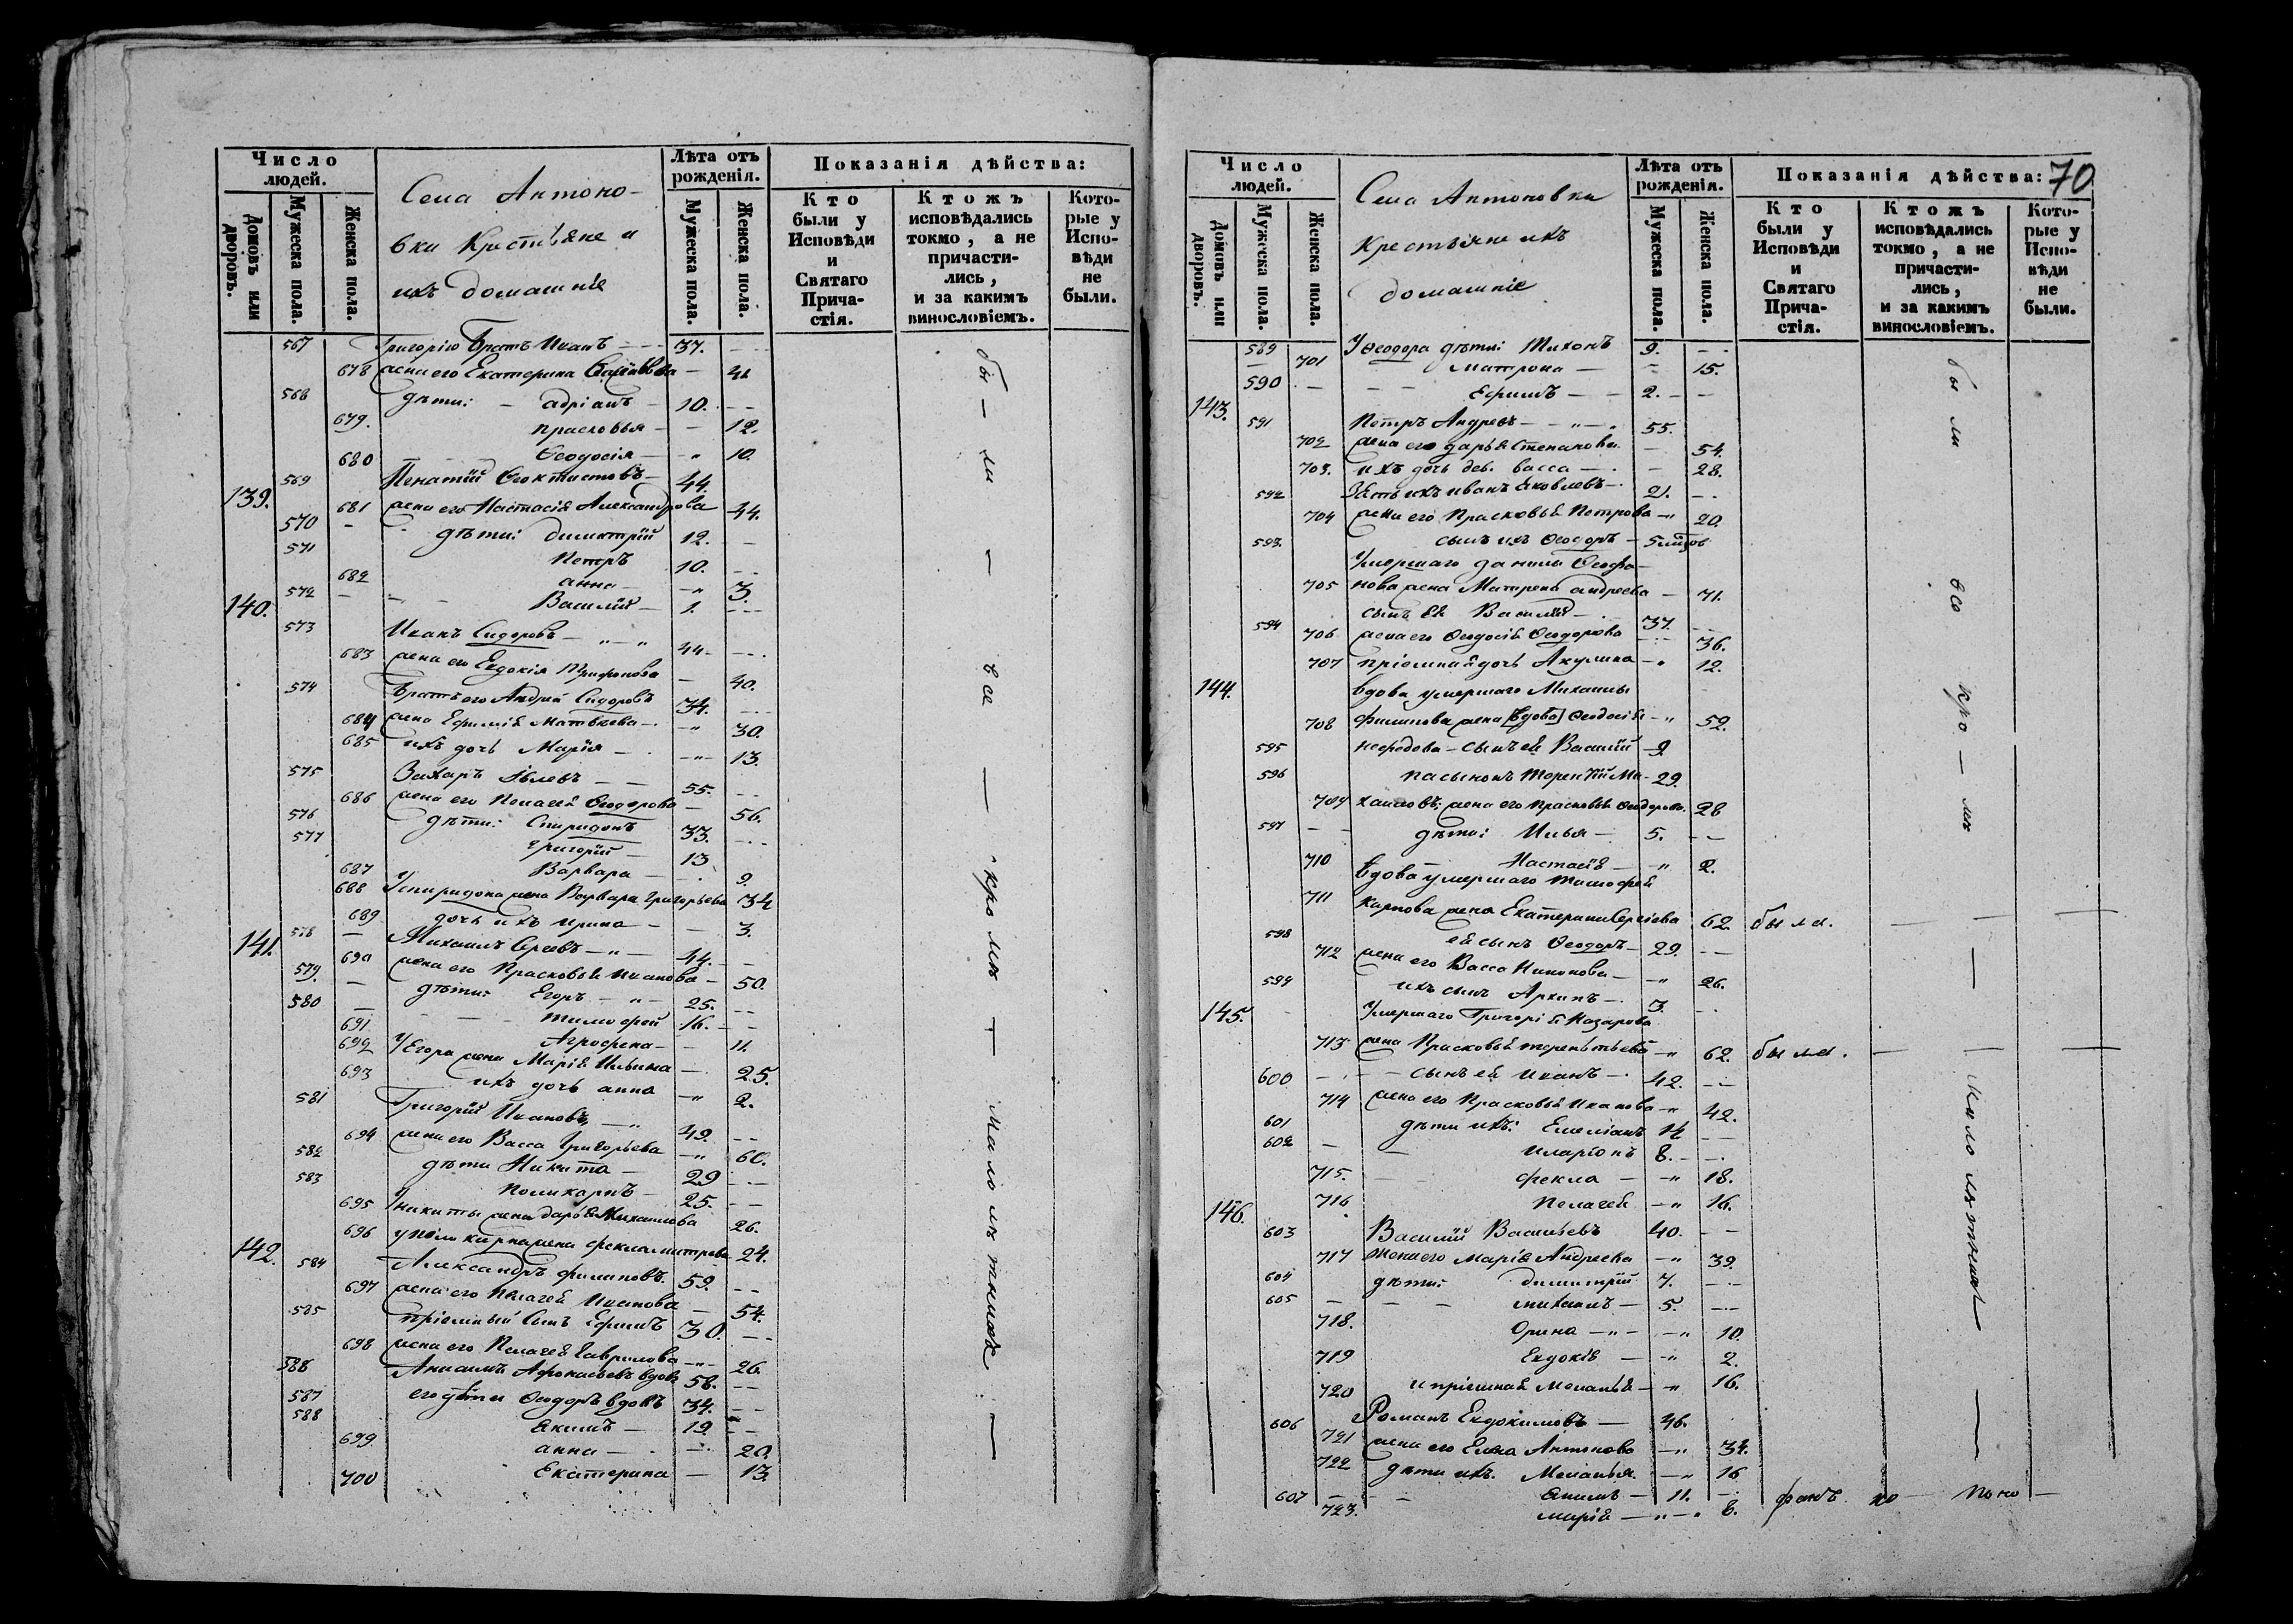 Число людей.
Домовъ или дворовъ.
Мужеска пола.
Женска пола.
Села Антоно-
вки Крестьяне и
ихъ домашніе
Лѣта отъ рожденія.
Мужеска пола.
Женска пола.
Показанія дѣйства:
Кто были у Исповѣди и Святаго Прича-стія.
Ктожъ исповѣдались токмо, а не причасти-лись, и за какимъ винословіемъ.
Кото-рые у Испо-вѣди не были.
567 Григорію братъ Иванъ — 37.
678 жена его Екатерина — 41
568 дѣти: — Адріанъ — 10.
679. Прасковья — 12.
680 Ѳеодосія — 10.
139. 569 Игнатій Ѳеоктистовъ — 44.
681 жена его Настасія Александрова 44.
570 дѣти: Димитрій 12.
571 Петръ 10.
682 Анна — 3.
572 Василій — 1.
140. 573 Иванъ Сидоровъ — 44.
683 жена его Евдокія Трифонова — 40.
574 Братъ его Андрей Сидоровъ 34.
684 жена Ефимія Матвѣева — 30.
685 ихъ дочь Марія — 13.
575 Захаръ Iвлевъ — 55.
686 жена его Пелагея Ѳеодорова — 56.
576 дѣти: Спиридонъ 33.
577 Григорій — 13
687 Варвара — 9.
688 У Спиридона жена Варвара Григорьева 34
689 дочь ихъ Ирина — 3.
141. 578 Михаилъ Сергеевъ — 44.
690 жена его Прасковья Иванова — 50.
579. дѣти: Егоръ — 25.
580 Тимофей 16.
691 Агрофена — 11.
692 У Егора жена Марія Ильина — 25.
693 ихъ дочь Анна — 2.
581 Григорій Ивановъ — 49.
694 жена его Васса Григорьева — 60.
582 дѣти Никита — 29
583 Поликарпъ — 25.
695 У Никиты жена Дарья Михаилова 26.
696 у Поликарпа жена Фекла Митрева 24.
142. 584 Александръ Филиповъ. 59.
697 жена его Пелагея Иванова — 54.
585 пріемный сынъ Ефимъ 30.
698 жена его Пелагея Гаврилова — 26.
586 Анисимъ Афонасьевъ вдовъ 58.
587 его дѣти Ѳеодоръ вдовъ 34.
588 Якимъ — 19.
699 Анна — 20.
700 Екатерина — 13.
бы — ли — все — кро мѣ — малолѣтныхъ —
70
Число людей.
Домовъ или дворовъ.
Мужеска пола.
Женска пола.
Села Антоновки
Крестьяне ихъ
домашніе
Лѣта отъ рожденія.
Мужеска пола.
Женска пола.
Показанія дѣйства:
Кто были у Исповѣди и Святаго Прича-стія.
Ктожъ исповѣдались токмо, а не причасти-лись, и за какимъ винословіемъ.
Кото-рые у Испо-вѣди не были.
589 У Ѳеодора дѣти: Тихонъ 9.
701 Матрона — 15.
590 Ефимъ — 2.
143. 591 Петръ Андреевъ — 55.
702 жена его Дарья Степанова — 54.
703. ихъ дочь дев. Васса — 28.
592 Зять ихъ Иванъ Яковлевъ — 21.
704 жена его Прасковья Петрова — 20.
593. сынъ ихъ Ѳеодоръ —
Умершаго Данилы Ѳеофа-
705 нова жена Матрена Андреева — 71.
594 сынъ ея Василій — 37.
706 жена его Ѳеодосія Ѳеодорова 36.
707 пріемная дочь Акулина — 12.
144. вдова умершаго Михаилы
708 Филипова жена [вдова] Ѳеодосія — 52.
595 Нефедова — сынъ ея Василій — 9
596 пасынокъ Терентій Ми- 29.
709 хаиловъ; жена его Прасковья Ѳеодорова. 28
597 дѣти: Илья — 5.
710 Настасія — 2.
вдова умершаго Тимофея
711 Карпова жена Екатерина Сергіева 62. была.
598 ея сынъ Ѳеодоръ — 29.
712 жена его Васса Никонова — 26.
599 ихъ сынъ Архипъ — 3.
145. Умершаго Григорія Назарова
713 жена Прасковья Терентьева — 62. была.
600 сынъ ея Иванъ — 42.
714 жена его Прасковья Иванова — 42.
601 дѣти ихъ: Емеліанъ 14
602 Иларіонъ 8.
715. Фекла — 18.
716 Пелагея — 16.
146. 603 Василій Васильевъ 40.
717 жена его Марія Андреева — 39.
604 дѣти: Димитрій 7.
605 Михаилъ — 5.
718. Орина — 10.
719 Евдокія — 2.
720 и пріемная Меланья — 16.
606 Романъ Евдокимовъ — 46.
721 жена его Елена Антонова — 34.
722 дѣти ихъ. Меланья — 16
607 Якимъ — 11.
723. Марія — 8.
бы ли все кро — мѣ — малолѣтныхъ —